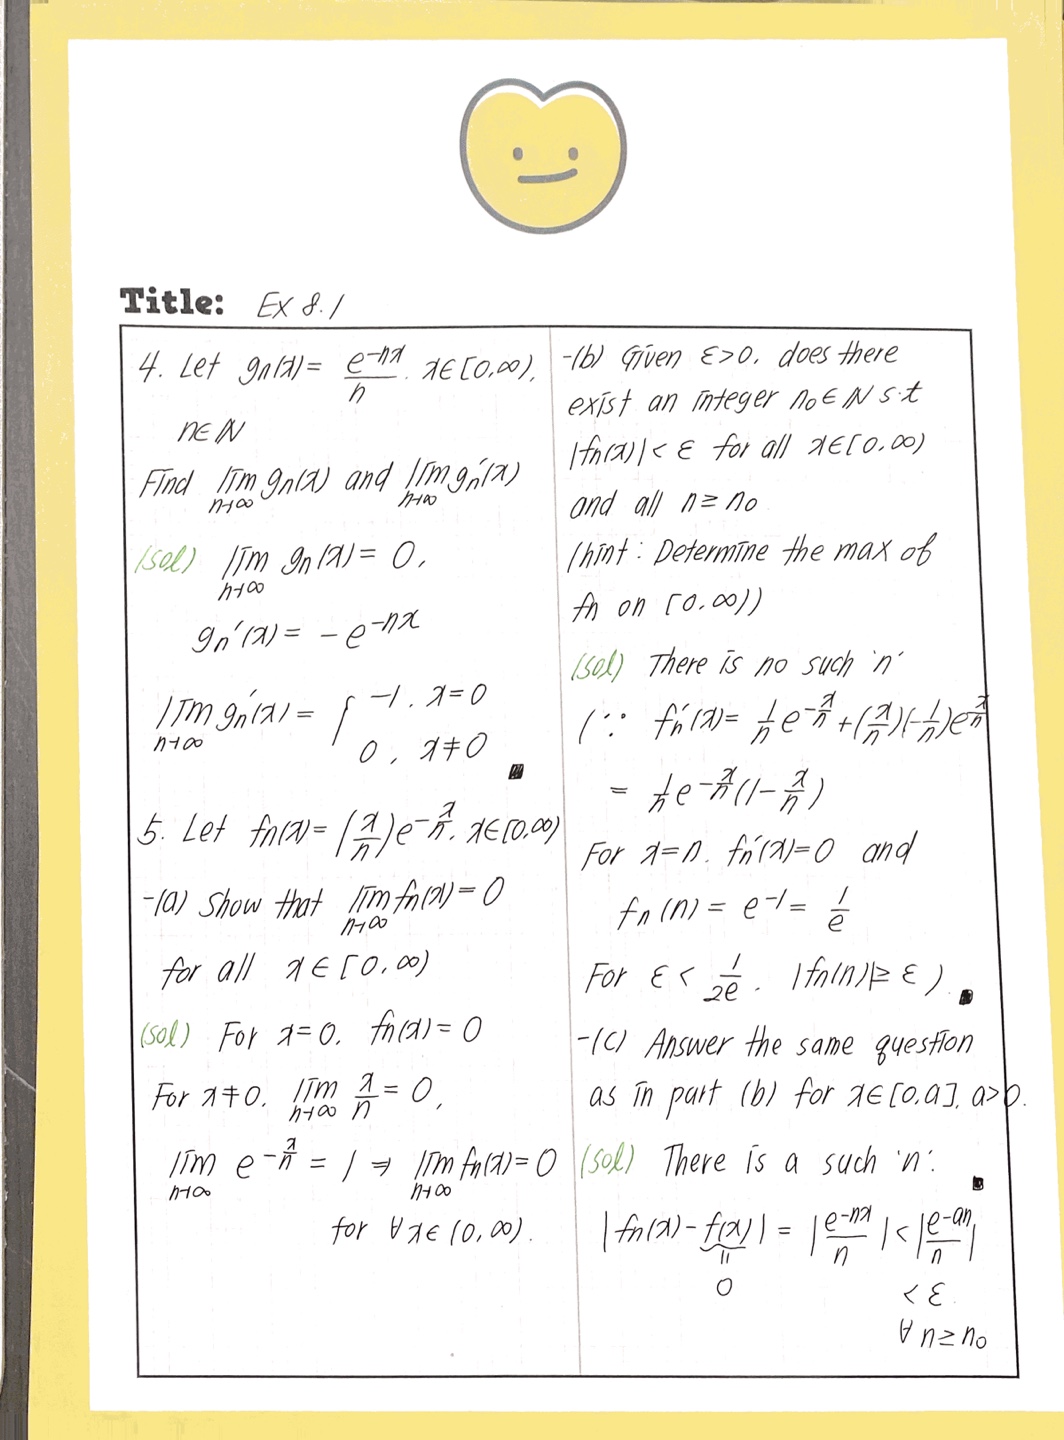 Title: Ex 8.1
4. Let gn(x) = e^-nx / n . x∈[0,∞),
n∈ℕ
Find lim n→∞ gn(x) and lim n→∞ gn'(x)
(sol) lim n→∞ gn(x) = 0,
gn'(x) = -e^-nx
lim n→∞ gn'(x) = { -1 . x=0
0 , x≠0 ■
5. Let fn(x) = (x/n)e^-x/n. x∈[0,∞)
-(a) Show that lim n→∞ fn(x) = 0
for all x∈[0,∞)
(sol) For x=0. fn(x) = 0
For x≠0. lim n→∞ x/n = 0,
lim n→∞ e^-x/n = 1 ⇒ lim n→∞ fn(x) = 0
for ∀x∈(0,∞).
-(b) Given ε>0. does there
exist an integer n₀∈ℕ s.t
|fn(x)| < ε for all x∈[0,∞)
and all n≥n₀
(hint : Determine the max of
fn on [0.∞))
(sol) There is no such 'n'
(∵ fn'(x) = 1/n e^-x/n + (x/n)(-1/n)e^x/n
= 1/n e^-x/n (1 - x/n)
For x=n. fn'(x)=0 and
fn(n) = e^-1 = 1/e
For ε < 1/2e . |fn(n)| ≥ ε ) ■
-(c) Answer the same question
as in part (b) for x∈[0,a], a>0.
(sol) There is a such 'n'. ■
|fn(x) - f(x)| = |e^-nx / n| < |e^-an / n|
=
0
< ε.
∀ n≥n₀